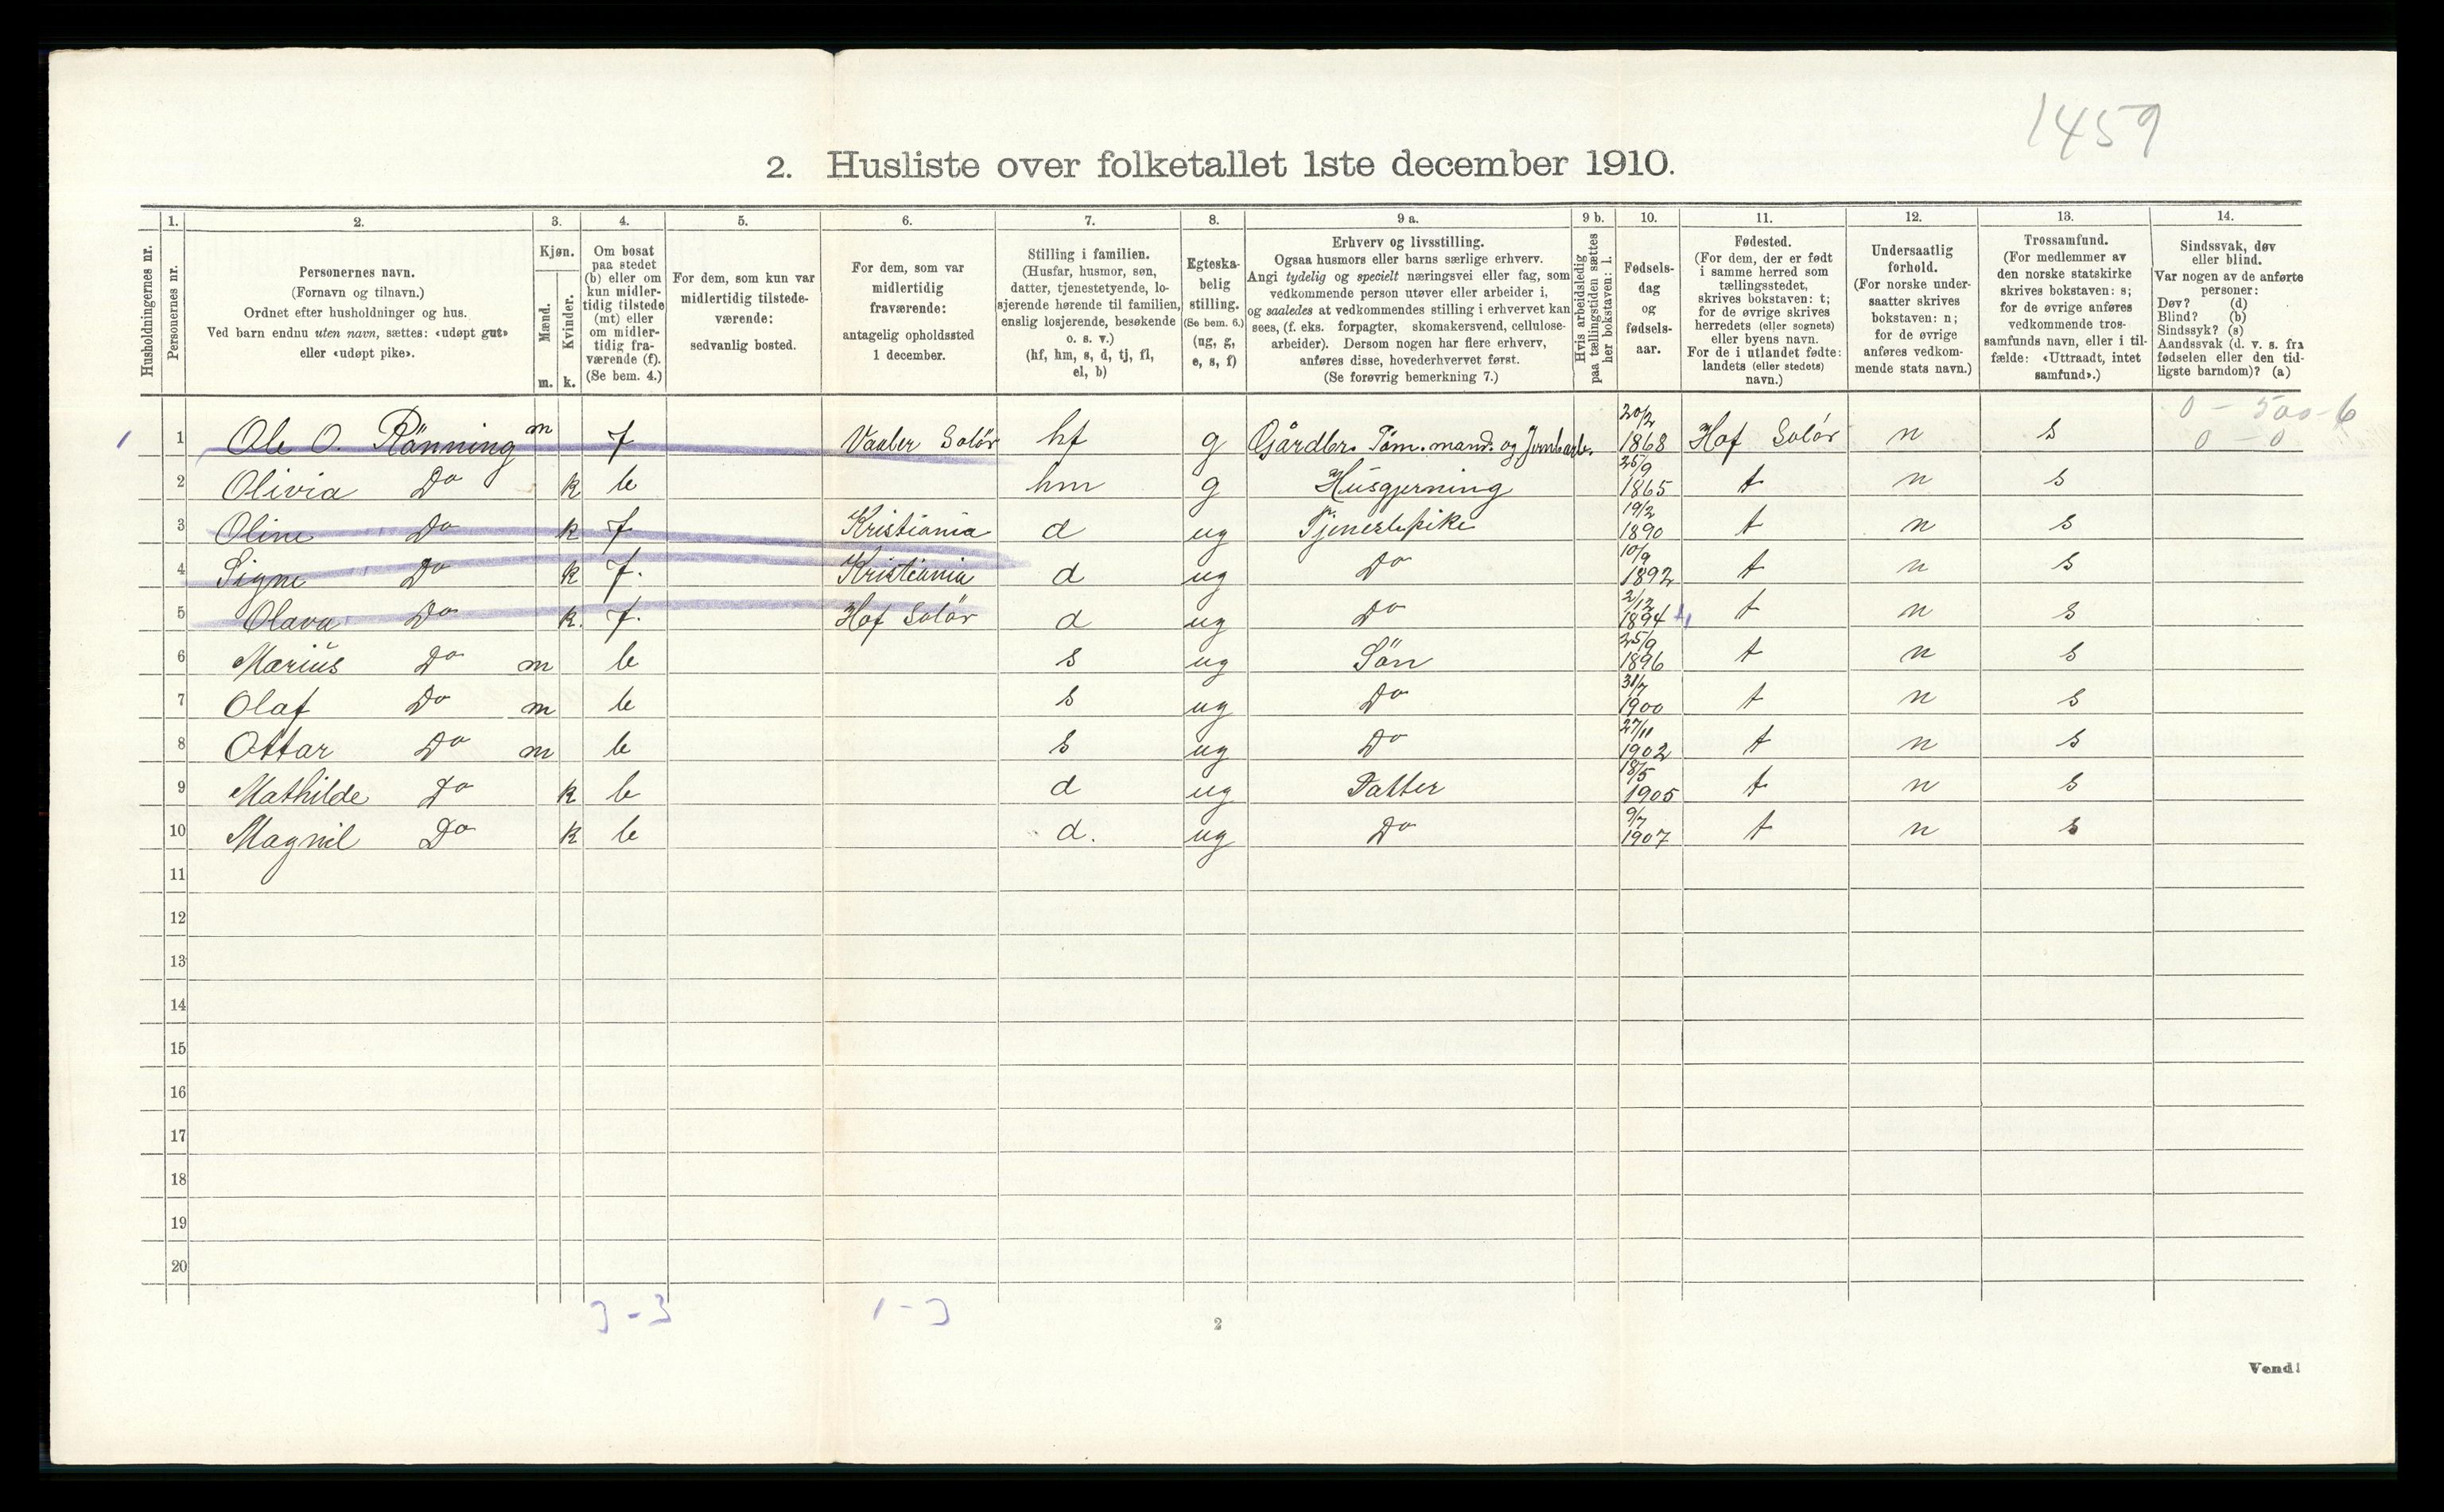 1459
2. Husliste over folketallet 1ste december 1910.
Husholdningernes nr.
1. Personernes nr.
2. Personernes navn.
(Fornavn og tilnavn.)
Ordnet efter husholdninger og hus.
Ved barn endnu uten navn, sættes: «udøpt gut»
eller «udøpt pike».
3. Kjøn.
Mænd. m.
Kvinder. k.
4. Om bosat
paa stedet
(b) eller om
kun midler-
tidig tilstede
(mt) eller
om midler-
tidig fra-
værende (f).
(Se bem. 4.)
5. For dem, som kun var
midlertidig tilstede-
værende:
sedvanlig bosted.
6. For dem, som var
midlertidig
fraværende:
antagelig opholdssted
1 december.
7. Stilling i familien.
(Husfar, husmor, søn,
datter, tjenestetyende, lo-
sjerende hørende til familien,
enslig losjerende, besøkende
o. s. v.)
(hf, hm, s, d, tj, fl,
el, b)
8. Egteska-
belig
stilling.
(Se bem. 6.)
(ug, g,
e, s, f)
9 a. Erhverv og livsstilling.
Ogsaa husmors eller barns særlige erhverv.
Angi tydelig og specielt næringsvei eller fag, som
vedkommende person utøver eller arbeider i,
og saaledes at vedkommendes stilling i erhvervet kan
sees, (f. eks. forpagter, skomakersvend, cellulose-
arbeider). Dersom nogen har flere erhverv,
anføres disse, hovederhvervet først.
(Se forøvrig bemerkning 7.)
9 b. Hvis arbeidsledig
paa tællingstiden sættes
her bokstaven: l.
10. Fødsels-
dag
og
fødsels-
aar.
11. Fødested.
(For dem, der er født
i samme herred som
tællingsstedet,
skrives bokstaven: t;
for de øvrige skrives
herredets (eller sognets)
eller byens navn.
For de i utlandet fødte:
landets (eller stedets)
navn.)
12. Undersaatlig
forhold.
(For norske under-
saatter skrives
bokstaven: n;
for de øvrige
anføres vedkom-
mende stats navn.)
13. Trossamfund.
(For medlemmer av
den norske statskirke
skrives bokstaven: s;
for de øvrige anføres
vedkommende tros-
samfunds navn, eller i til-
fælde: «Uttraadt, intet
samfund».)
14. Sindssvak, døv
eller blind.
Var nogen av de anførte
personer:
Døv? (d)
Blind? (b)
Sindssyk? (s)
Aandssvak (d. v. s. fra
fødselen eller den tid-
ligste barndom)? (a)
0 - 500 - 6
0 - 0
1 1 Ole O. Rönning m f Vaaler Solör hf g Gårdbr. Töm.mand. og Jernb.arb. 20/2 1868 Hof Solör n s
2 Olivia Do k b hm g Husgjerning 25/9 1865 t n s
3 Oline Do k f Kristiania d ug Tjenestepike 19/2 1890 t n s
4 Signe Do k f. Kristiania d ug Do 10/9 1892 t n s
5 Olava Do k. f. Hof Solör d ug Do 2/12 1894 t n s
6 Marius Do m b s ug Sön 25/9 1896 t n s
7 Olaf Do m b s ug Do 31/7 1900 t n s
8 Ottar Do m b s ug Do 27/11 1902 t n s
9 Mathilde Do k b d ug Datter 18/5 1905 t n s
10 Magnil Do k b d. ug Do 9/7 1907 t n s
11
12
13
14
15
16
17
18
19
20
3 - 3 1 - 3
2
Vend!